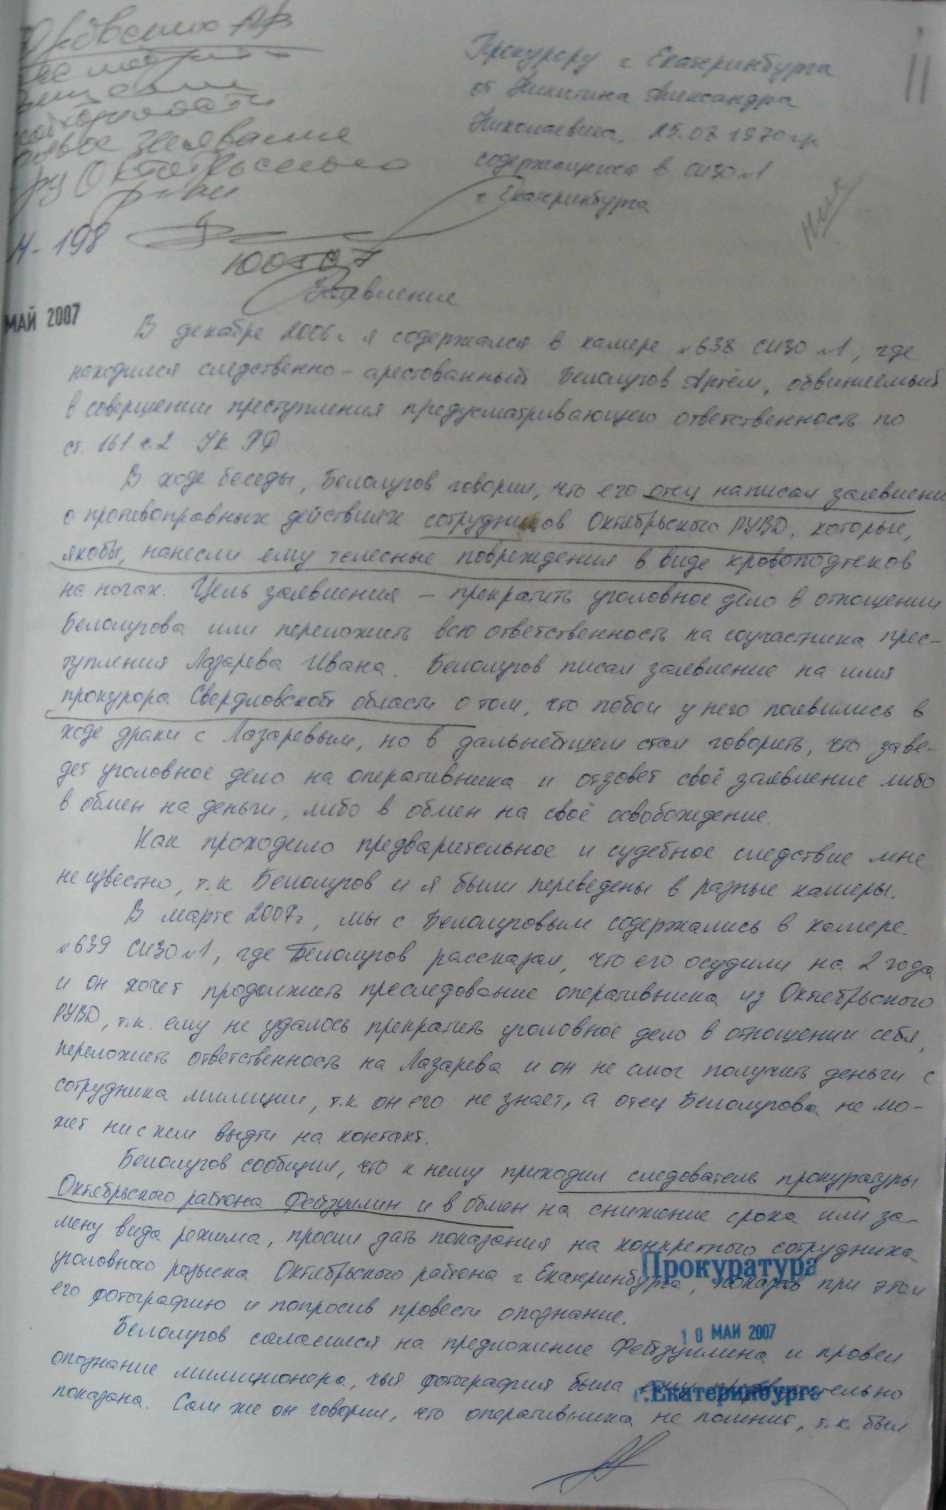 11
Прокурору г Екатеринбурга
от Никитина Александра
Николаевича, 25.03 1970 гр
содержащегося в СИЗО №1
г Екатеринбурга
заявление
ру Октябрьского
р-на
Н-198
МАЙ 2007
Заявление
В декабре 2006г я содержался в камере №638 СИЗО №1, где
находился следственно-арестованный Белолугов Артём, обвиняемый
в совершении преступления предусматривающего ответственность по
ст. 161 ч.2 УК РФ
В ходе беседы, Белолугов говорил, что его отец написал заявление
о противоправных действиях сотрудников Октябрьского РУВД, которые,
якобы, нанесли ему телесные повреждения в виде кровоподтеков
на ногах. Цель заявления – прекратить уголовное дело в отношении
Белолугова или переложить всю ответственность на соучастника прес-
тупления Лазарева Ивана. Белолугов писал заявление на имя
прокурора Свердловской области о том, что побои у него появились в
ходе драки с Лазаревым, но в дальнейшем стал говорить, что заве-
дет уголовное дело на оперативника и отзовёт своё заявление либо
в обмен на деньги, либо в обмен на своё освобождение.
Как проходило предварительное и судебное следствие мне
не известно, т.к Белолугов и я были переведены в разные камеры.
В марте 2007г, мы с Белолуговым содержались в камере
№639 СИЗО №1, где Белолугов рассказал, что его осудили на 2 года
и он хочет продолжить преследование оперативника из Октябрьского
РУВД, т.к. ему не удалось прекратить уголовное дело в отношении себя,
переложить ответственность на Лазарева и он не смог получить деньги с
сотрудника милиции, т.к он его не знает, а отец Белолугова не мо-
жет ни с кем выйти на контакт.
Белолугов сообщил, что к нему приходил следователь прокуратуры
Октябрьского района Фейзуллин и в обмен на снижение срока или за-
мену вида режима, просил дать показания на конкретного сотрудника
уголовного розыска Октябрьского района г Екатеринбурга, показав при этом
его фотографию и попросив провести опознание.
Прокуратура
10 МАЙ 2007
г.Екатеринбурга
Белолугов согласился на предложение Фейзуллина и провел
опознание милиционера, чья фотография была ему предварительно
показана. Сам же он говорил, что оперативника не помнит, т.к. был